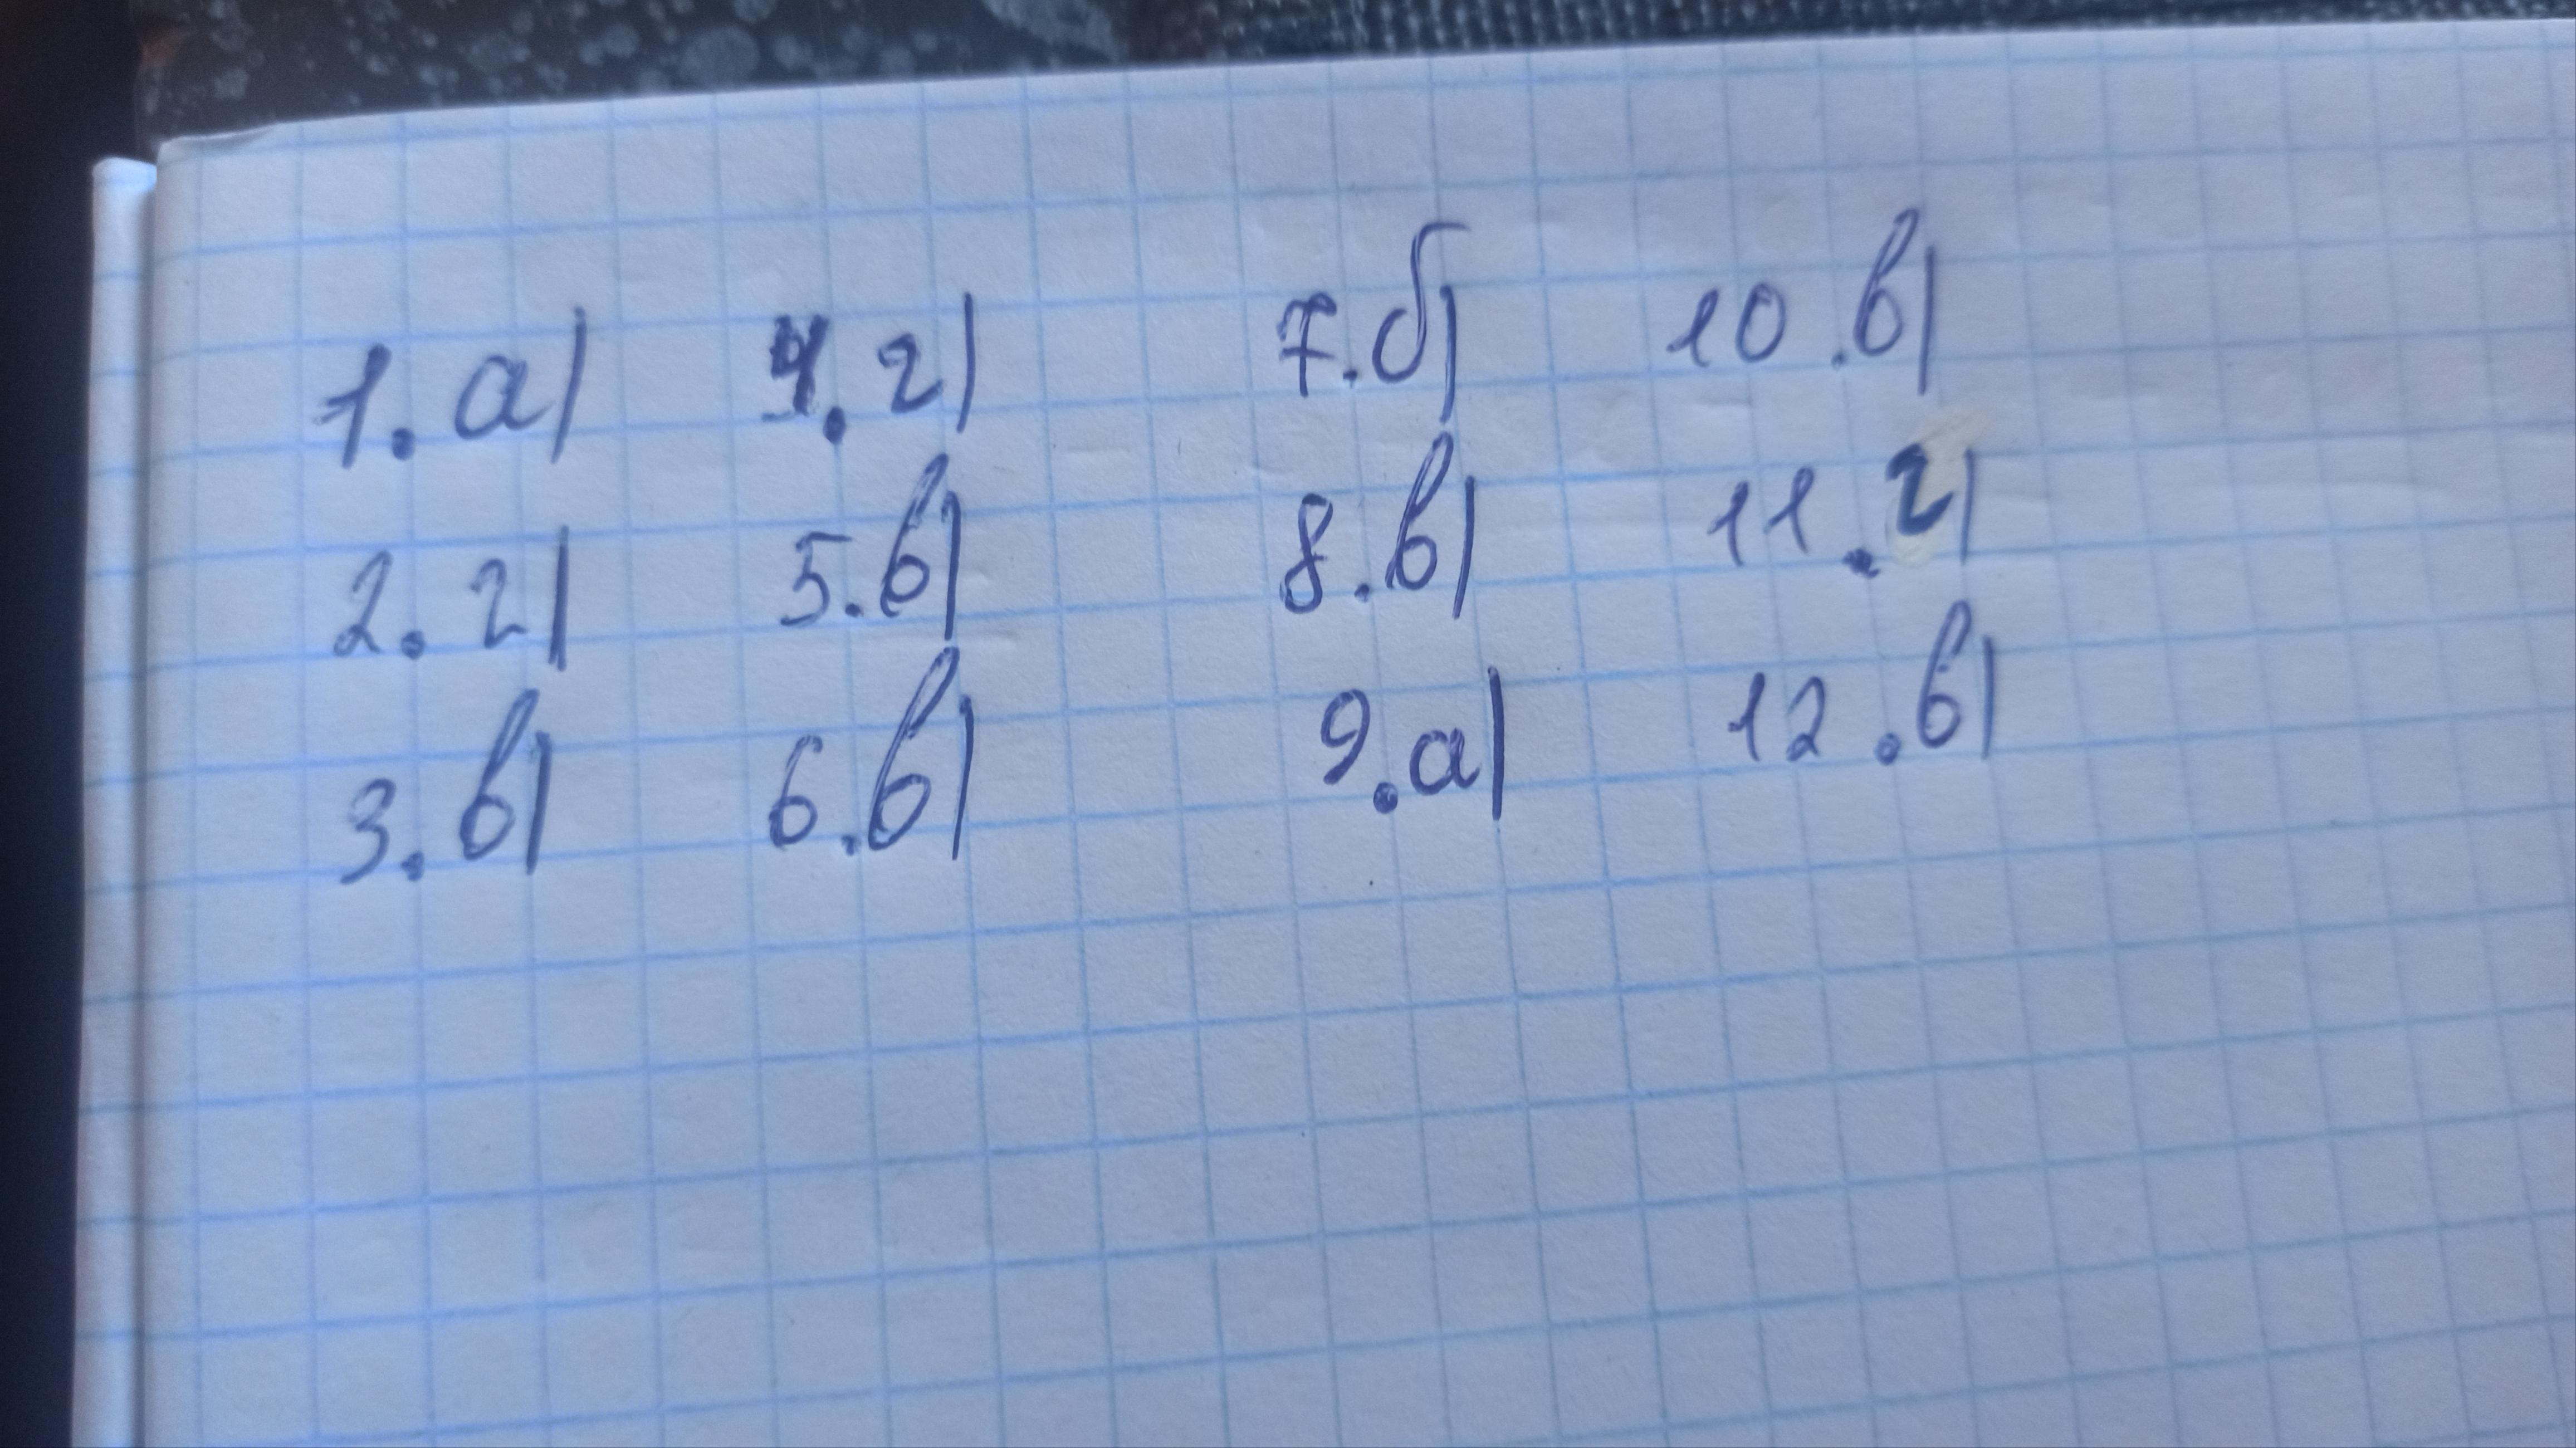 1. а) 4. г) 7. б) 10. в)
2. г) 5. в) 8. в) 11. г)
3. в) 6. в) 9. а) 12. в)